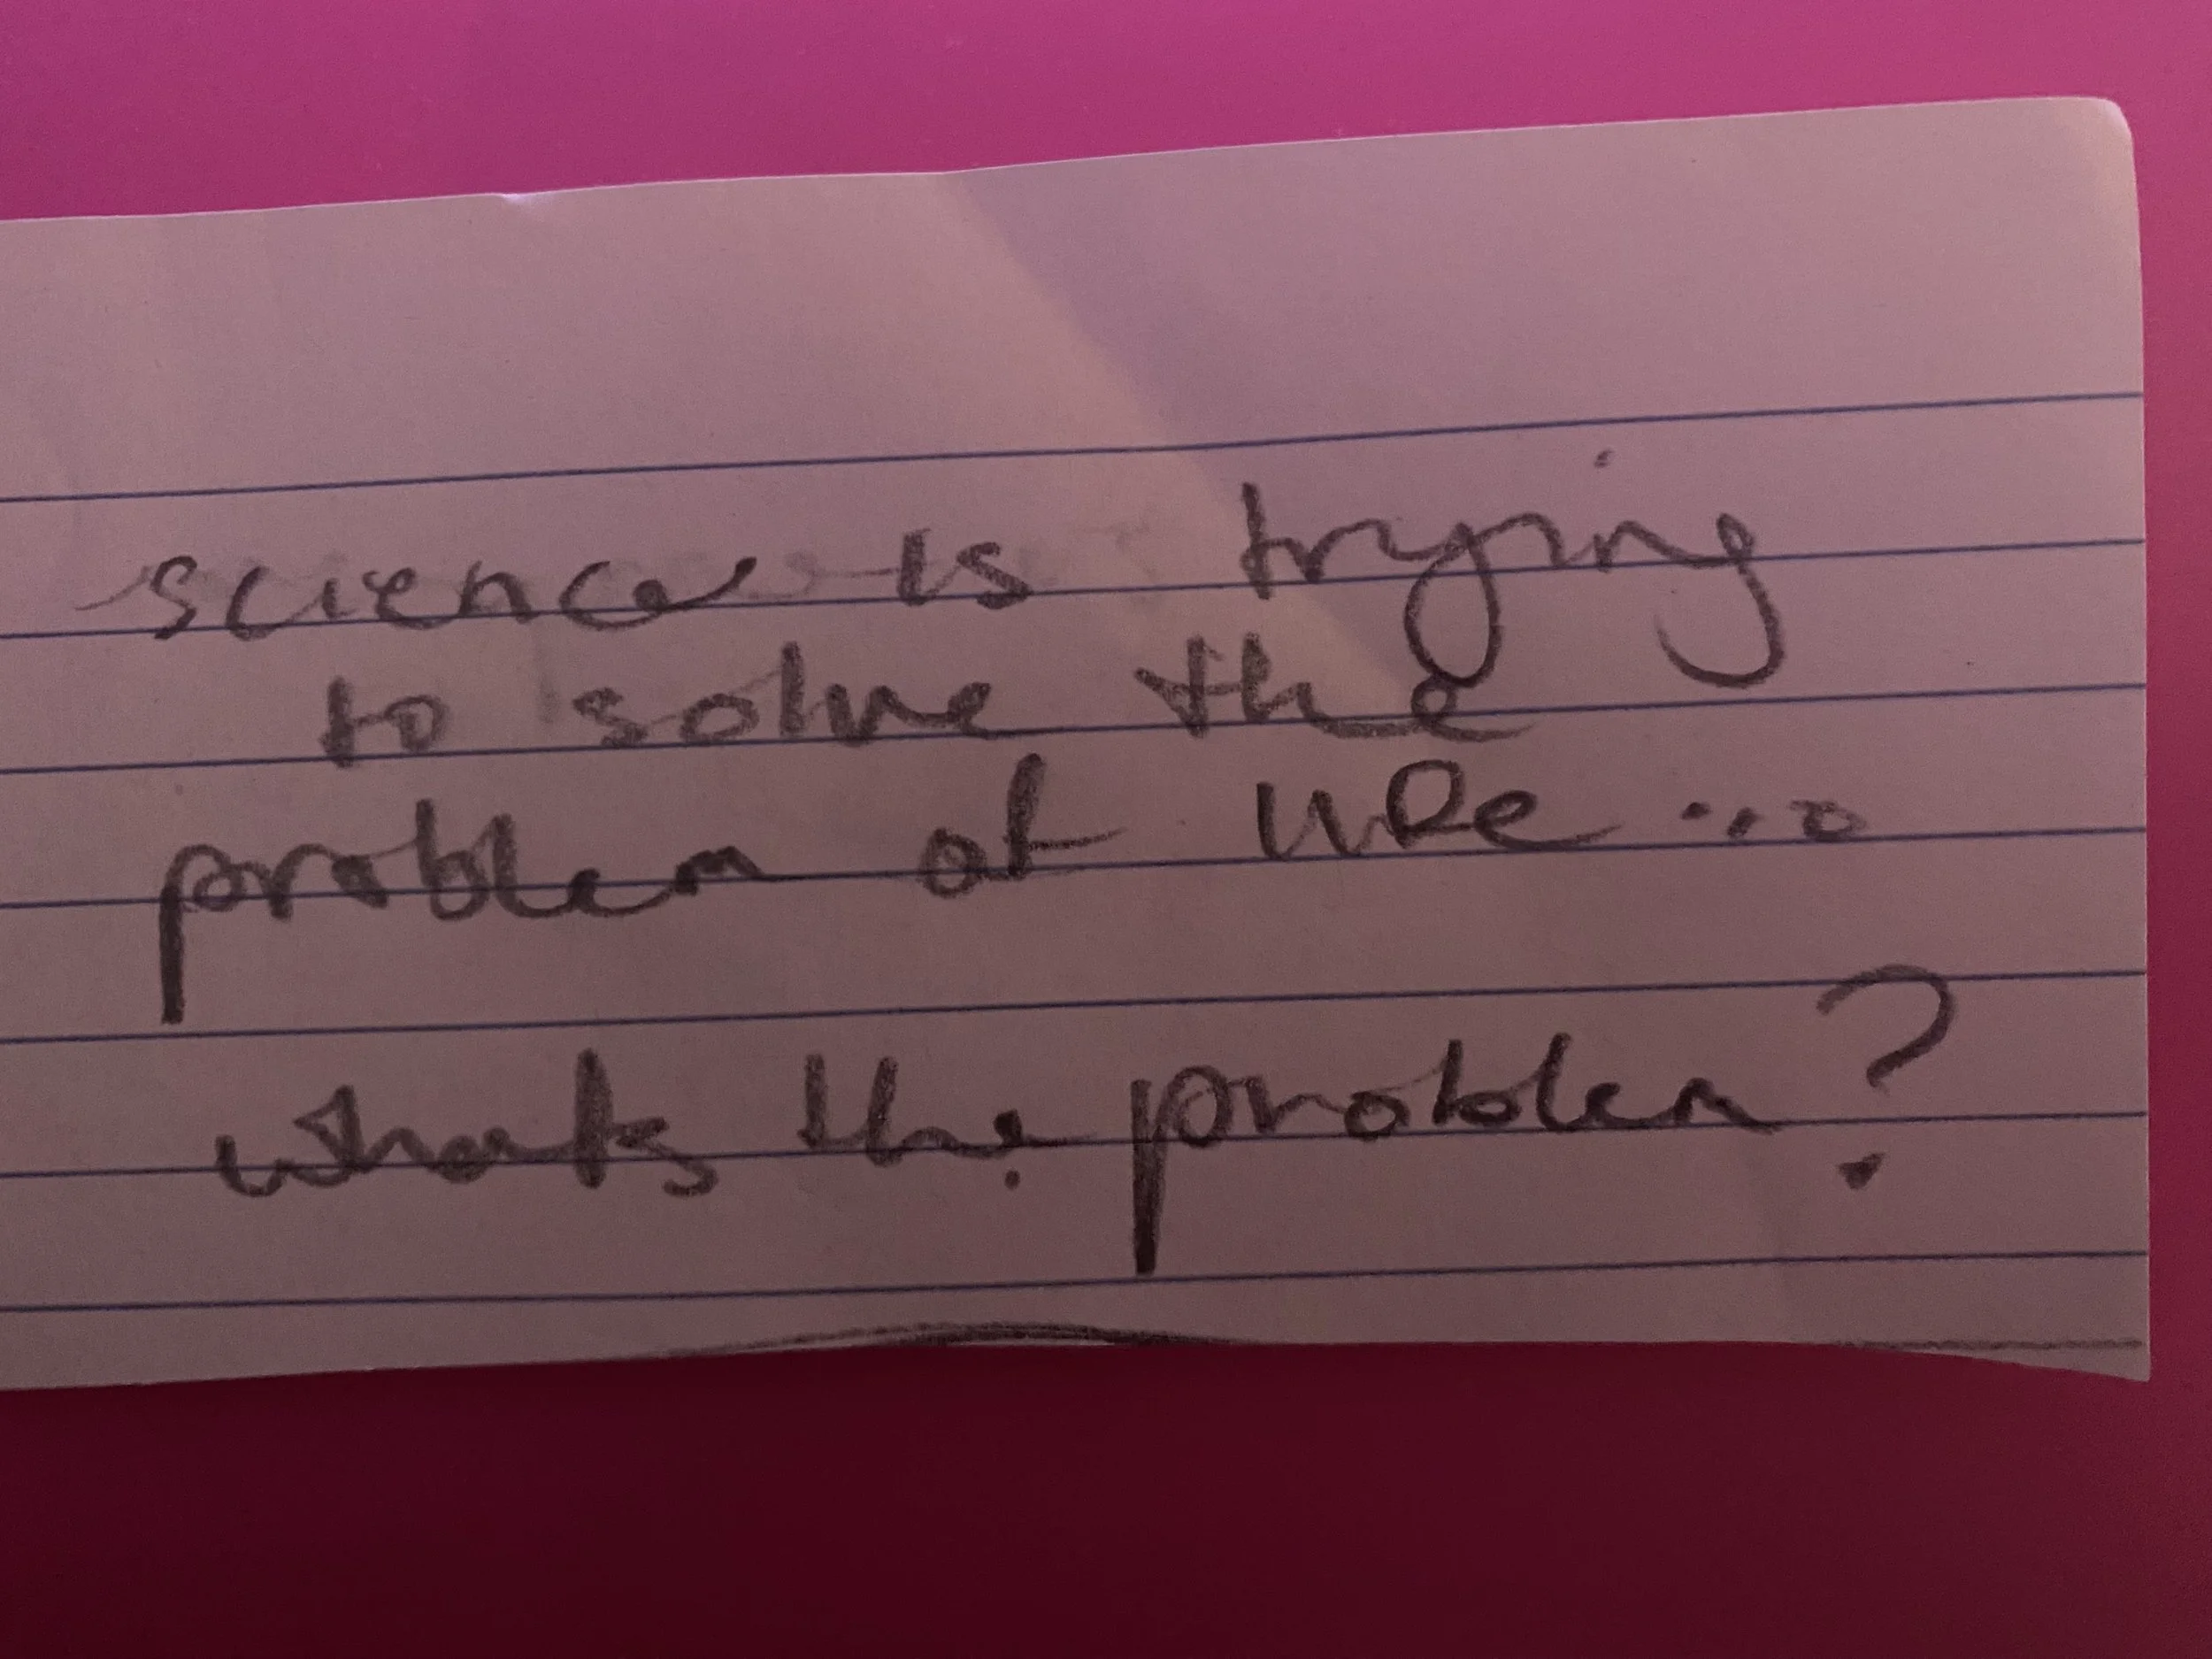 science is trying
to solve the
problem of life ...
whats the problem?